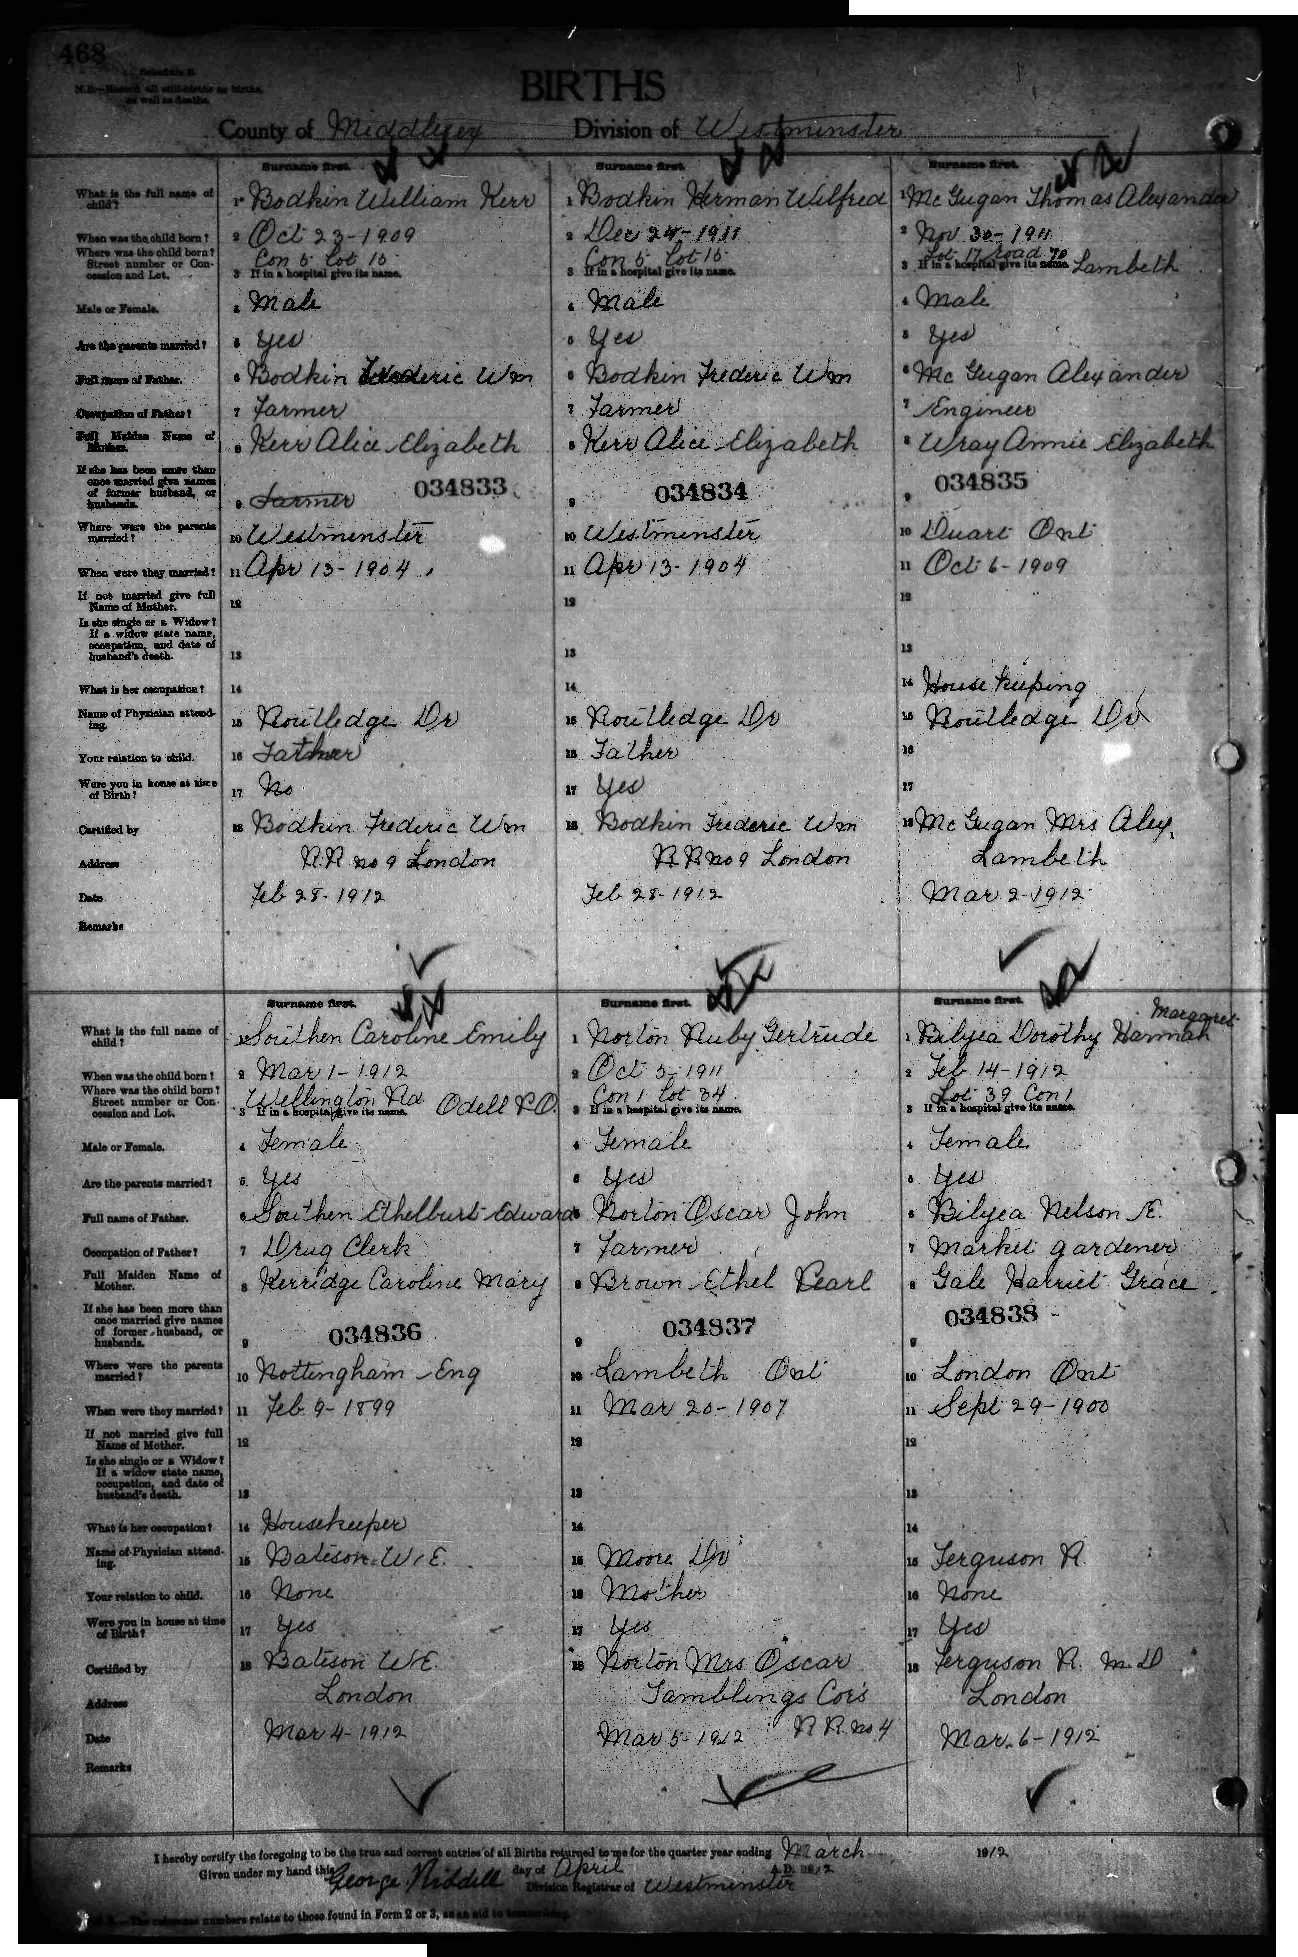 468
Schedule B.
N.B.—Record all still-births as births,
as well as deaths.
BIRTHS
County of Middlesex Division of Westminster
Surname first. Surname first. Surname first.
What is the full name of child? 1 Bodkin William Kerr 1 Bodkin Herman Wilfred 1 McGugan Thomas Alexander
When was the child born? 2 Oct 23-1909 2 Dec 24-1911 2 Nov 30-1911
Where was the child born? Street number or Concession and Lot. Con 5 Lot 15 Con 5 Lot 15 Lot 17 road 70
3 If in a hospital give its name. 3 If in a hospital give its name. 3 If in a hospital give its name. Lambeth
Male or Female. 4 Male 4 Male 4 Male
Are the parents married? 5 Yes 5 Yes 5 Yes
Full name of Father. 6 Bodkin Frederic Wm 6 Bodkin Frederic Wm 6 McGugan Alexander
Occupation of Father? 7 Farmer 7 Farmer 7 Engineer
Full Maiden Name of Mother. 8 Kerr Alice Elizabeth 8 Kerr Alice Elizabeth 8 Wray Annie Elizabeth
If she has been more than once married give names of former husband, or husbands. 9 Farmer 034833 9 034834 9 034835
Where were the parents married? 10 Westminster 10 Westminster 10 Duart Ont
When were they married? 11 Apr 13-1904 11 Apr 13-1904 11 Oct 6-1909
If not married give full Name of Mother. 12 12 12
Is she single or a Widow? If a widow state name, occupation, and date of husband's death. 13 13 13
What is her occupation? 14 14 14 House keeping
Name of Physician attending. 15 Routledge Dr 15 Routledge Dr 15 Routledge Dr
Your relation to child. 16 Father 16 Father 16
Were you in house at time of Birth? 17 No 17 Yes 17
Certified by 18 Bodkin Frederic Wm 18 Bodkin Frederic Wm 18 McGugan Mrs Alex.
Address R.R. no 9 London R.R. no 9 London Lambeth
Date Feb 28-1912 Feb 28-1912 Mar 2-1912
Remarks
Surname first. Surname first. Surname first.
Margaret
What is the full name of child? 1 Southen Caroline Emily 1 Norton Ruby Gertrude 1 Bilyea Dorothy Hannah
When was the child born? 2 Mar 1-1912 2 Oct 5-1911 2 Feb 14-1912
Where was the child born? Street number or Concession and Lot. Wellington Rd Con 1 Lot 34 Lot 39 Con 1
3 If in a hospital give its name. Odell P.O. 3 If in a hospital give its name. 3 If in a hospital give its name.
Male or Female. 4 Female 4 Female 4 Female
Are the parents married? 5 Yes 5 Yes 5 Yes
Full name of Father. 6 Southen Ethelburt Edward 6 Norton Oscar John 6 Bilyea Nelson E.
Occupation of Father? 7 Drug Clerk 7 Farmer 7 Market gardener
Full Maiden Name of Mother. 8 Kerridge Caroline Mary 8 Brown Ethel Pearl 8 Gale Harriet Grace
If she has been more than once married give names of former husband, or husbands. 9 034836 9 034837 9 034838
Where were the parents married? 10 Nottingham Eng 10 Lambeth Ont 10 London Ont
When were they married? 11 Feb 9-1899 11 Mar 20-1907 11 Sept 29-1900
If not married give full Name of Mother. 12 12 12
Is she single or a Widow? If a widow state name, occupation, and date of husband's death. 13 13 13
What is her occupation? 14 Housekeeper 14 14
Name of Physician attending. 15 Bateson W.E. 15 Moore Dr 15 Ferguson R.
Your relation to child. 16 None 16 Mother 16 None
Were you in house at time of Birth? 17 Yes 17 Yes 17 Yes
Certified by 18 Bateson W.E. 18 Norton Mrs Oscar 18 Ferguson R. M.D
Address London Tamblings Cor's London
Date Mar 4-1912 Mar 5-1912 R.R. no 4 Mar. 6-1912
Remarks
I hereby certify the foregoing to be the true and correct entries of all Births returned to me for the quarter year ending March 1912
Given under my hand this day of April A.D. 1912
George Riddell Division Registrar of Westminster
N.B.—The columns numbers relate to those found in Form 2 or 3, as an aid to